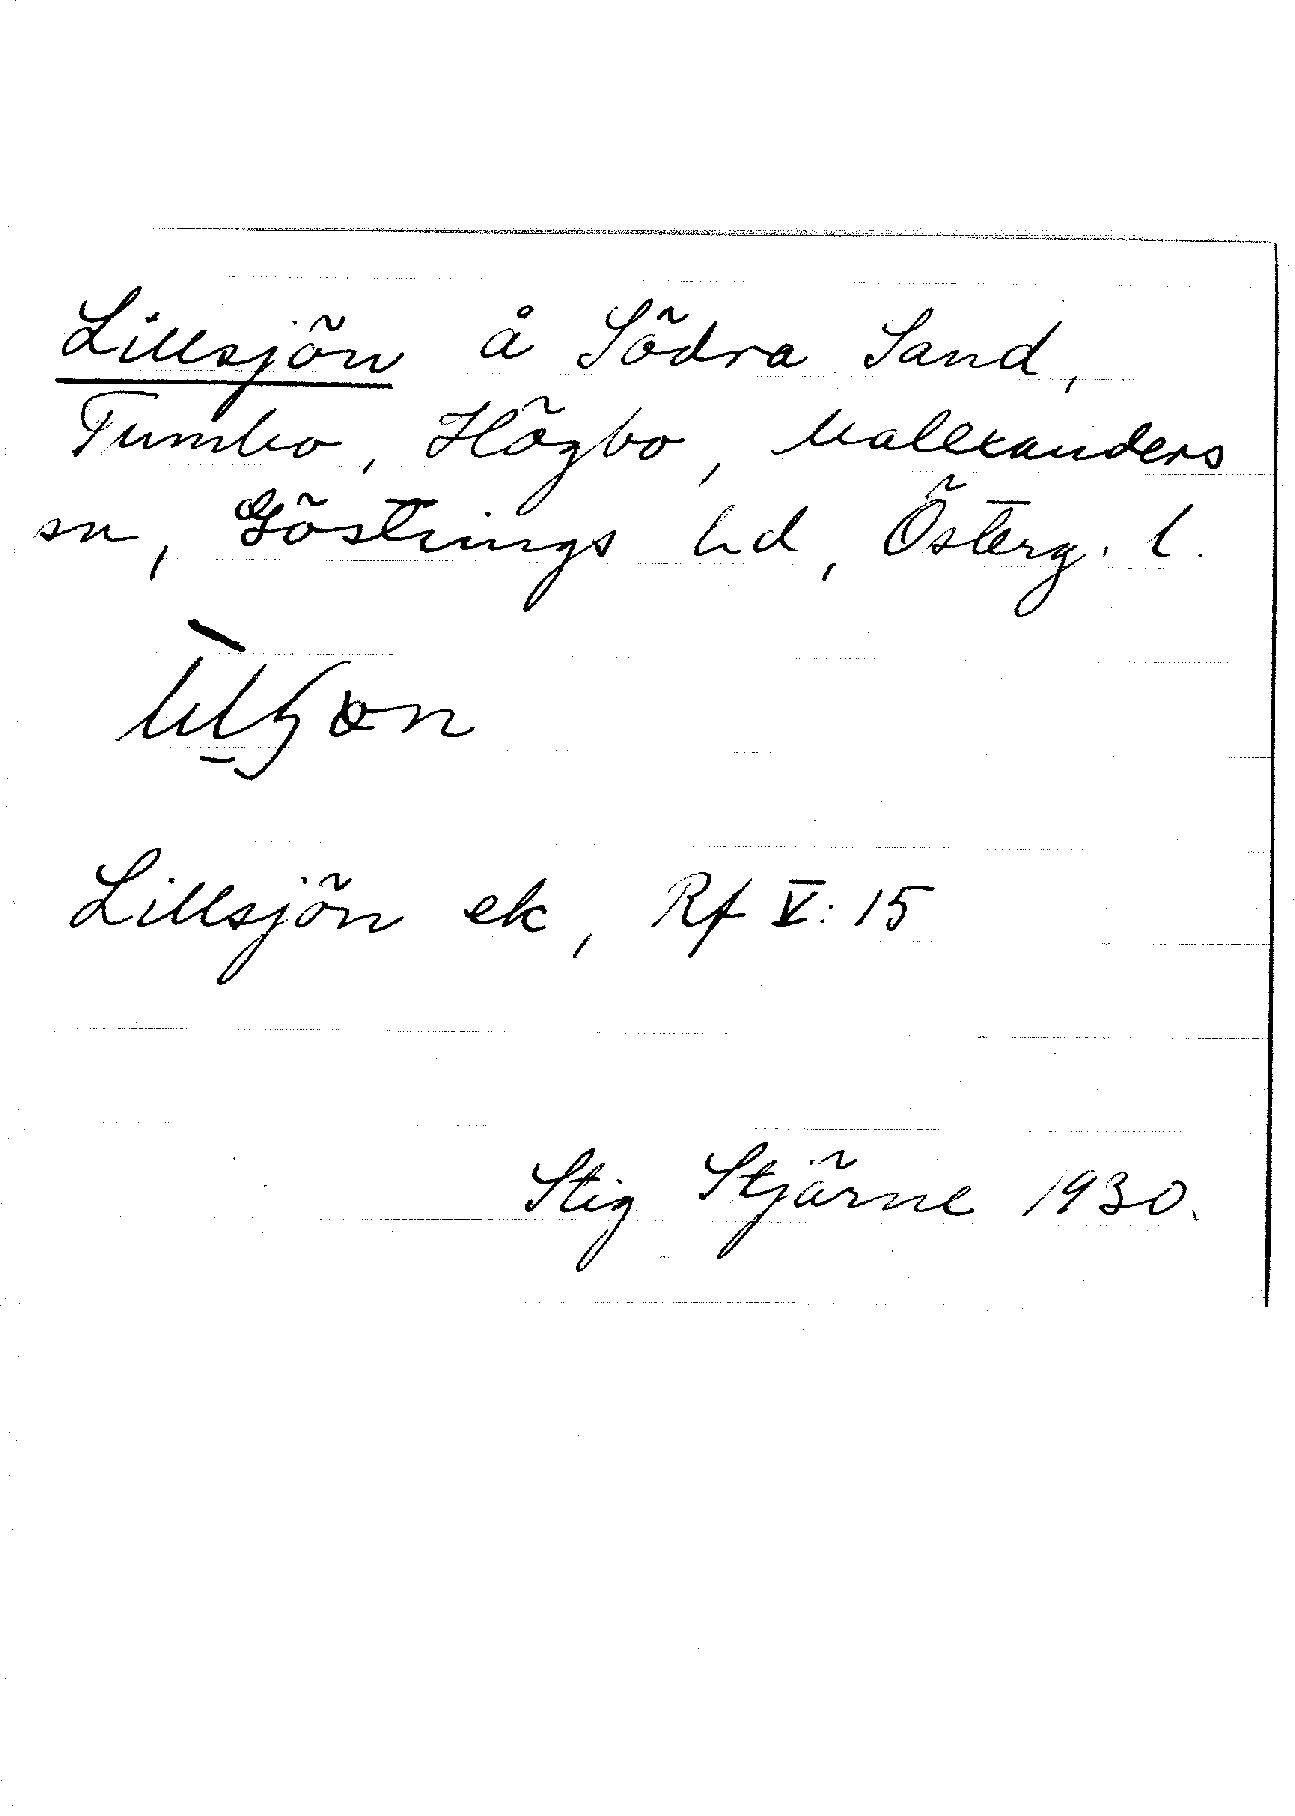 Lillsjön å Södra Sand,
Tumbo, Högbo, Malexanders
sn, Göstrings hd, Österg. l.
Lillsjön ek, Rf V: 15
Stig Stjärne 1930.